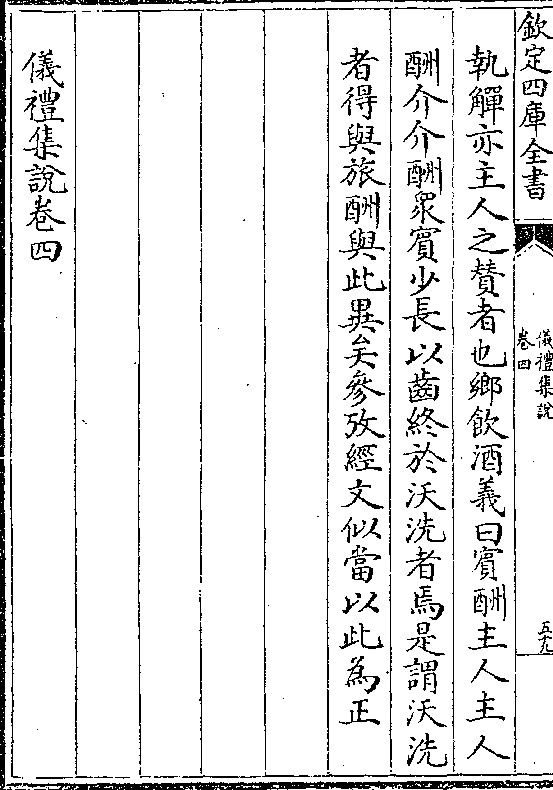 欽定四庫全書
儀禮集說
卷四
五十九
執觶亦主人之賛者也鄉飲酒義曰賓酬主人主人
酬介介酬衆賓少長以齒終於沃洗者焉是謂沃洗
者得與旅酬與此異矣參攷經文似當以此為正
儀禮集說卷四